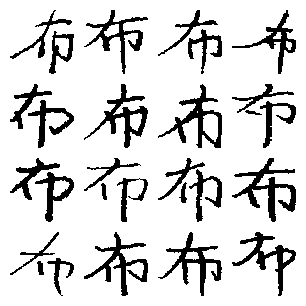 布布布布
布布布布
布布布布
布布布布